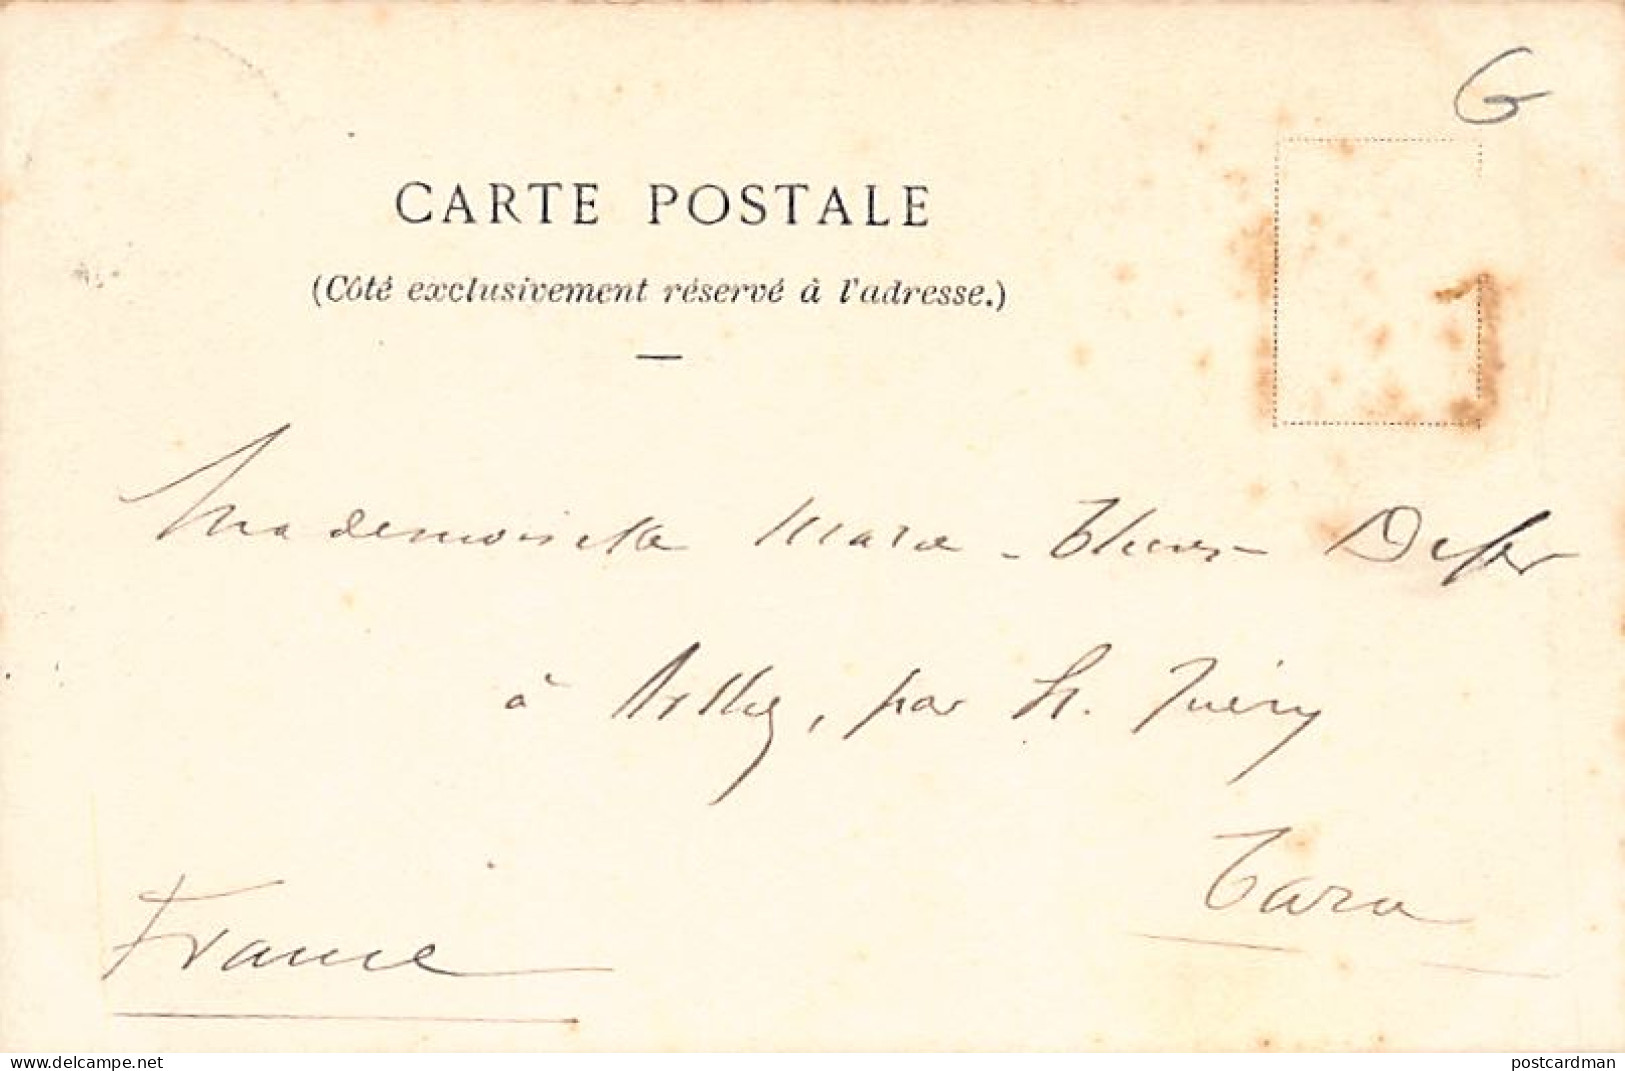 G
CARTE POSTALE
(Côté exclusivement réservé à l'adresse.)
Mademoiselle Marie-Thérèse
à par St. Juéry
Tarn
France
www.delcampe.net
postcardman